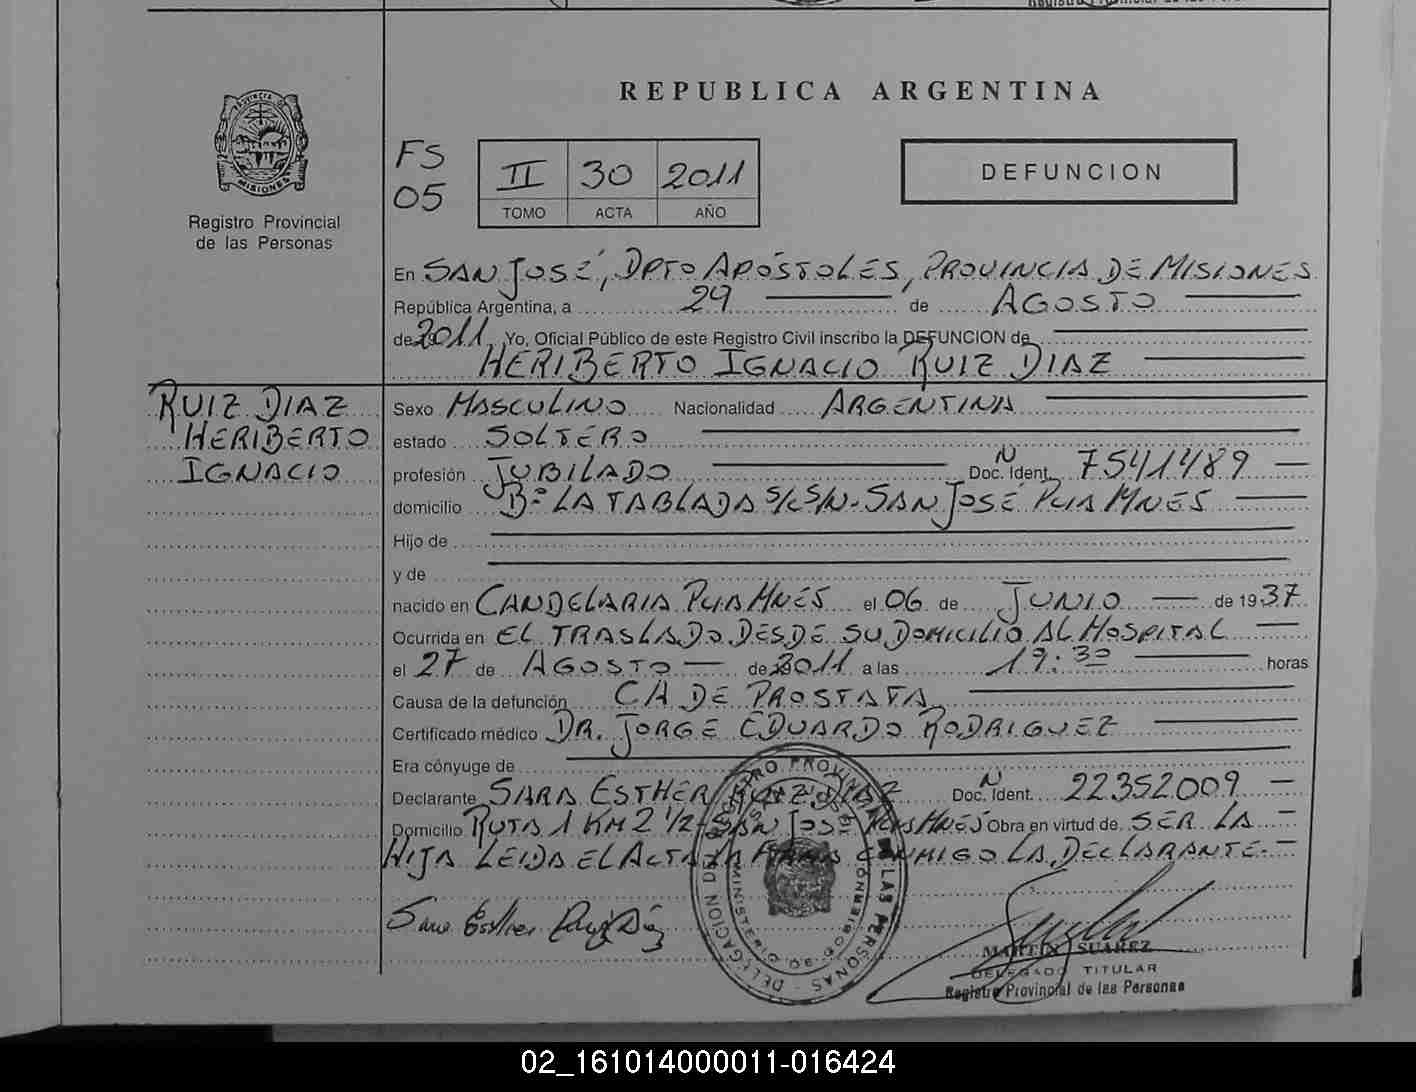 REPUBLICA ARGENTINA
PROVINCIA DE
MISIONES
Registro Provincial
de las Personas
FS
05
II 30 2011
TOMO ACTA AÑO
DEFUNCION
En SAN JOSÉ, DPTO APÓSTOLES, PROVINCIA DE MISIONES
República Argentina, a 29 de AGOSTO
de 2011 Yo, Oficial Público de este Registro Civil inscribo la DEFUNCION de
HERIBERTO IGNACIO RUIZ DIAZ
RUIZ DIAZ
HERIBERTO
IGNACIO
Sexo MASCULINO Nacionalidad ARGENTINA
estado SOLTERO
profesión JUBILADO Doc. Ident. N 7541489
domicilio Bº LA TABLADA S/C S/N. SAN JOSÉ PCIA MNES
Hijo de
y de
nacido en CANDELARIA PCIA MNES el 06 de JUNIO de 1937
Ocurrida en EL TRASLADO DESDE SU DOMICILIO AL HOSPITAL
el 27 de AGOSTO de 2011 a las 19:30 horas
Causa de la defunción CA DE PROSTATA
Certificado médico DR. JORGE EDUARDO RODRIGUEZ
Era cónyuge de
Declarante SARA ESTHER RUIZ DIAZ Doc. Ident. N 22352009
Domicilio RUTA 1 KM 2 1/2 SAN JOSÉ PCIA MNES Obra en virtud de SER LA
HIJA LEIDA EL ACTA LA FIRMA CONMIGO LA DECLARANTE.
Sara Esther Ruiz Díaz
DELEGACION DEL REGISTRO PROVINCIAL DE LAS PERSONAS
SAN JOSE
MINISTERIO DE GOBIERNO
MARTIN SUAREZ
DELEGADO TITULAR
Registro Provincial de las Personas
02_161014000011-016424